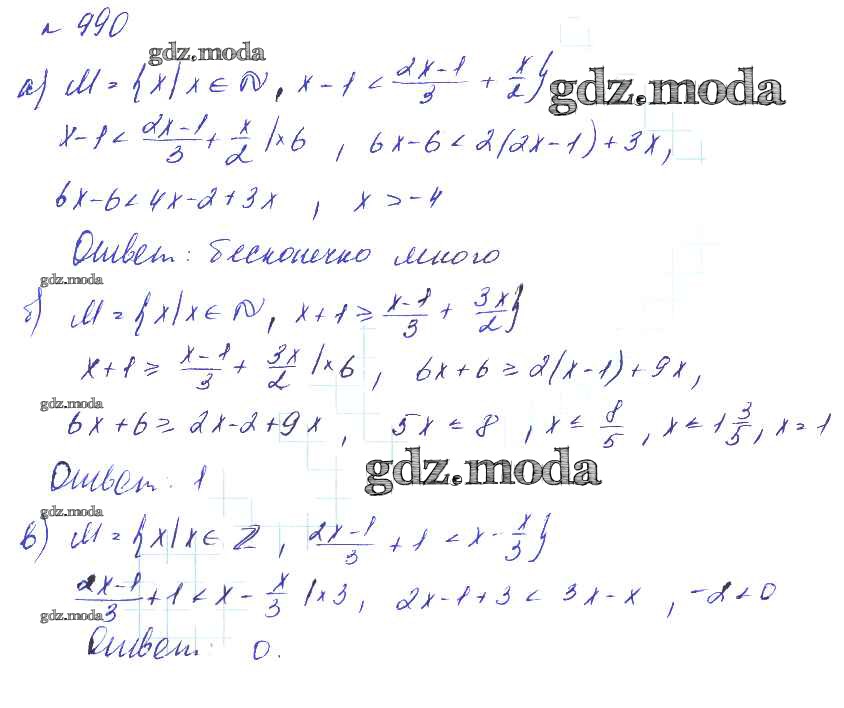 № 990
gdz.moda
а) M = {x | x ∈ N, x - 1 < (2x-1)/3 + x/2}
gdz.moda
x - 1 < (2x-1)/3 + x/2 | × 6 , 6x - 6 < 2(2x - 1) + 3x,
6x - 6 < 4x - 2 + 3x , x > -4
Ответ: бесконечно много
gdz.moda
б) M = {x | x ∈ N, x + 1 ≥ (x-1)/3 + 3x/2}
x + 1 ≥ (x-1)/3 + 3x/2 | × 6 , 6x + 6 ≥ 2(x - 1) + 9x,
gdz.moda
6x + 6 ≥ 2x - 2 + 9x , 5x ≤ 8 , x ≤ 8/5 , x ≤ 1 3/5, x = 1
Ответ: 1
gdz.moda
gdz.moda
в) M = {x | x ∈ Z , (2x-1)/3 + 1 < x - x/3}
(2x-1)/3 + 1 < x - x/3 | × 3 , 2x - 1 + 3 < 3x - x , -2 < 0
gdz.moda
Ответ: 0.